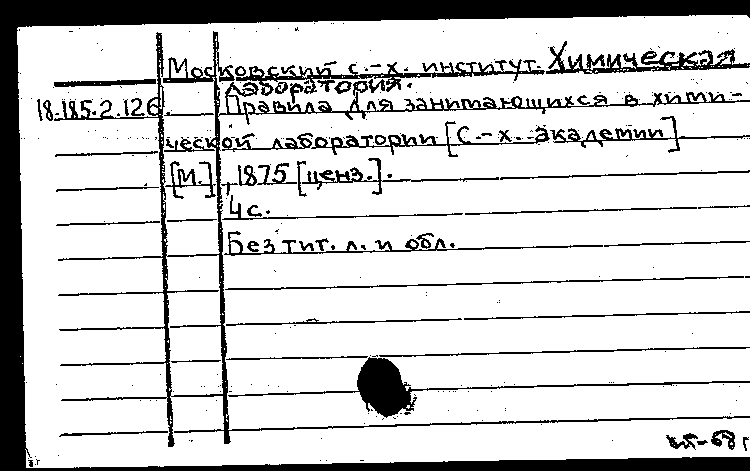 Московский с.-х. институт. Химическая
лаборатория.
18.185.2.126. Правила для занимающихся в хими-
ческой лаборатории [С.-х. академии]
[М.], 1875 [ценз.].
4 с.
Без тит. л. и обл.